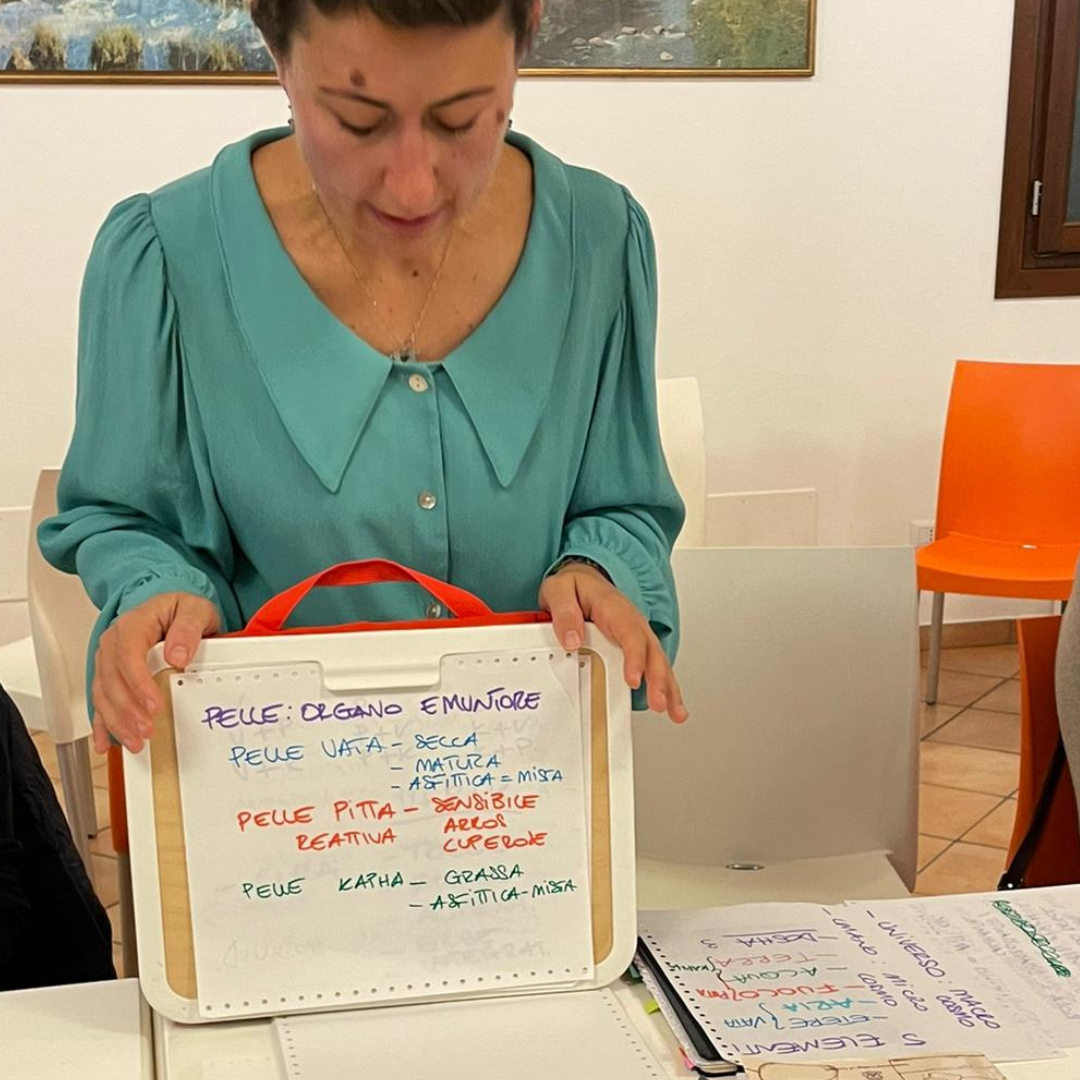 PELLE: ORGANO EMUNTORE
PELLE VATA - SECCA
- MATURA
- ASFITTICA = MISTA
PELLE PITTA - SENSIBILE
REATTIVA ARROS
CUPEROSE
PELLE KAPHA - GRASSA
- ASFITTICA-MISTA
5 ELEMENTI
- ETERE } VATA
- ARIA
- FUOCO} PITTA
- ACQUA
- TERRA
- DOSHA 3
- UNIVERSO: MACRO
COSMO
- UOMO: MICRO
COSMO